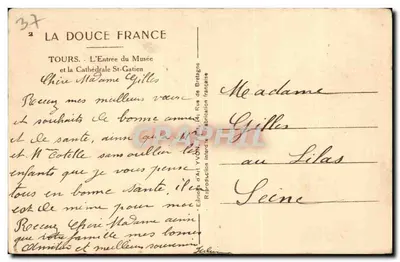 37
2
LA DOUCE FRANCE
TOURS. - L'Entrée du Musée
et la Cathédrale St-Gatien
Chère Madame Gilles
Recevez mes meilleurs vœux
et souhaits de bonne année
et de santé, ainsi que
et Mr sans oublier les
enfants que je vous pense
tous en bonne santé, il en
est de même pour moi
Recevez Chère Madame ainsi
que votre famille mes bonnes
amitiés et meilleurs souvenirs
Madame
Gilles
au Lilas
Seine
Rue de Bretagne
Reproduction interdite
CPARAMA